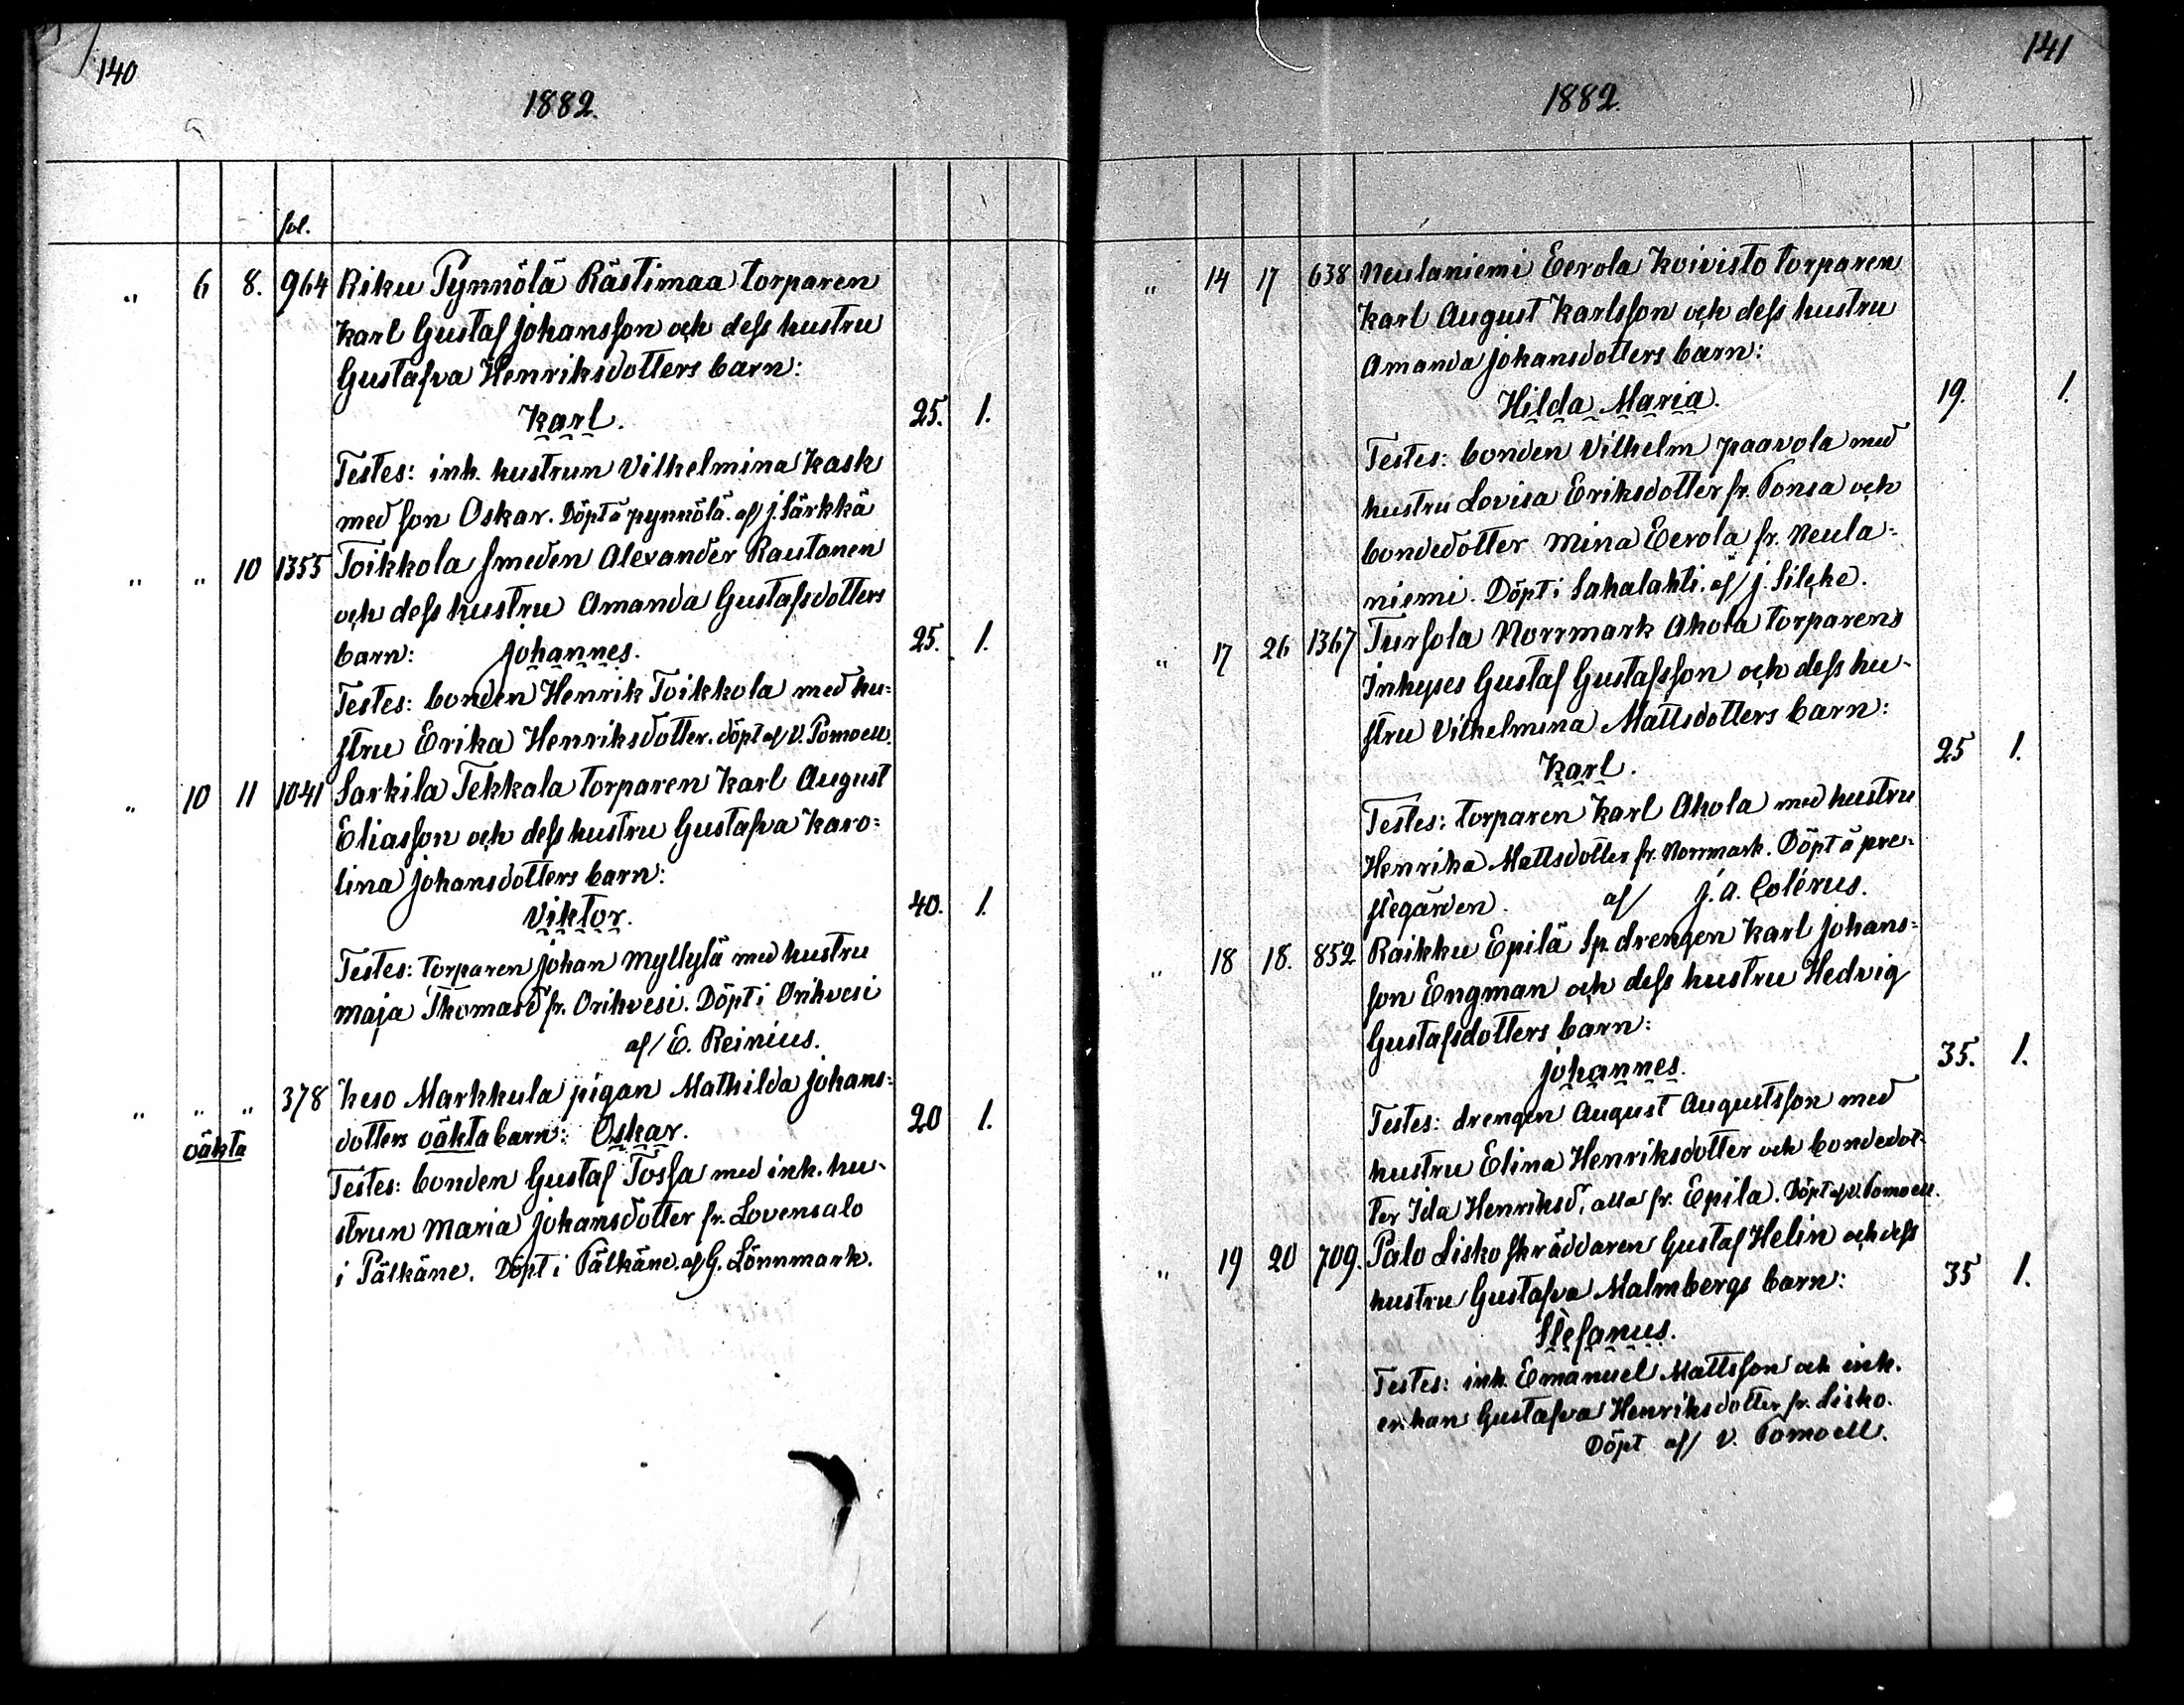 140
1882.
fol.
" 6 8. 964 Riku Pynnölä Rästimaa torparen
Karl Gustaf Johansson och dess hustru
Gustafva Henriksdotters barn:
Karl. 25. 1.
Testes: inh. hustrun Vilhelmina Kask
med son Oskar. Döpt å Pynnölä. af J. Särkkä
" " 10 1355 Toikkola smeden Alexander Rautanen
och dess hustru Amanda Gustafsdotters
barn: Johannes. 25. 1.
Testes: bonden Henrik Toikkola med hu=
stru Erika Henriksdotter. döpt af V. Pomoell.
" 10 11 1041 Sarkila Tekkala torparen Karl August
Eliasson och dess hustru Gustafva Karo=
lina Johansdotters barn:
Viktor. 40. 1.
Testes: torparen Johan Myllylä med hustru
Maja Thomasd fr. Orihvesi. Döpt i Orihvesi
af E. Reinius.
" " " 378 Keso Markkula pigan Mathilda Johans=
dotters oäkta barn: Oskar. 20 1.
oäkta
Testes: bonden Gustaf Tossa med inh. hu-
strun Maria Johansdotter fr. Lovensalo
i Pälkäne. Döpt i Pälkäne. af G. Lönnmark.
141
1882.
" 14 17 638 Neulaniemi Eerola Koivisto torparen
Karl August Karlsson och dess hustru
Amanda Johansdotters barn:
Hilda Maria. 19. 1.
Testes: bonden Vilhelm Paavola med
hustru Lovisa Eriksdotter fr. Ponsa och
bondedotter Mina Eerola fr. Neula-
niemi. Döpt i Sahalahti. af J. Silcke.
" 17 26 1367 Tursola Norrmark Ahola torparens
Inhyses Gustaf Gustafsson och dess hu-
stru Vilhelmina Mattsdotters barn:
Karl. 25 1.
Testes: torparen Karl Ahola med hustru
Henrika Mattsdotter fr. Norrmark. Döpt å pre-
stegården. af J. A. Colérus.
" 18 18. 852 Raikku Epilä Sp. drengen Karl Johans=
son Engman och dess hustru Hedvig
Gustafsdotters barn:
Johannes. 35. 1.
Testes: drengen August Augustsson med
hustru Elina Henriksdotter och bondedot-
ter Ida Henriksd, alla fr. Epila. Döpt af V. Pomoell.
" 19 20 709. Palo Lisko skräddaren Gustaf Helin och dess
hustru Gustafva Malmbergs barn: 35 1.
Stefanus.
Testes: inh. Emanuel Mattsson och inh.
enkan Gustafva Henriksdotter fr. Lisko.
Döpt af V. Pomoell.